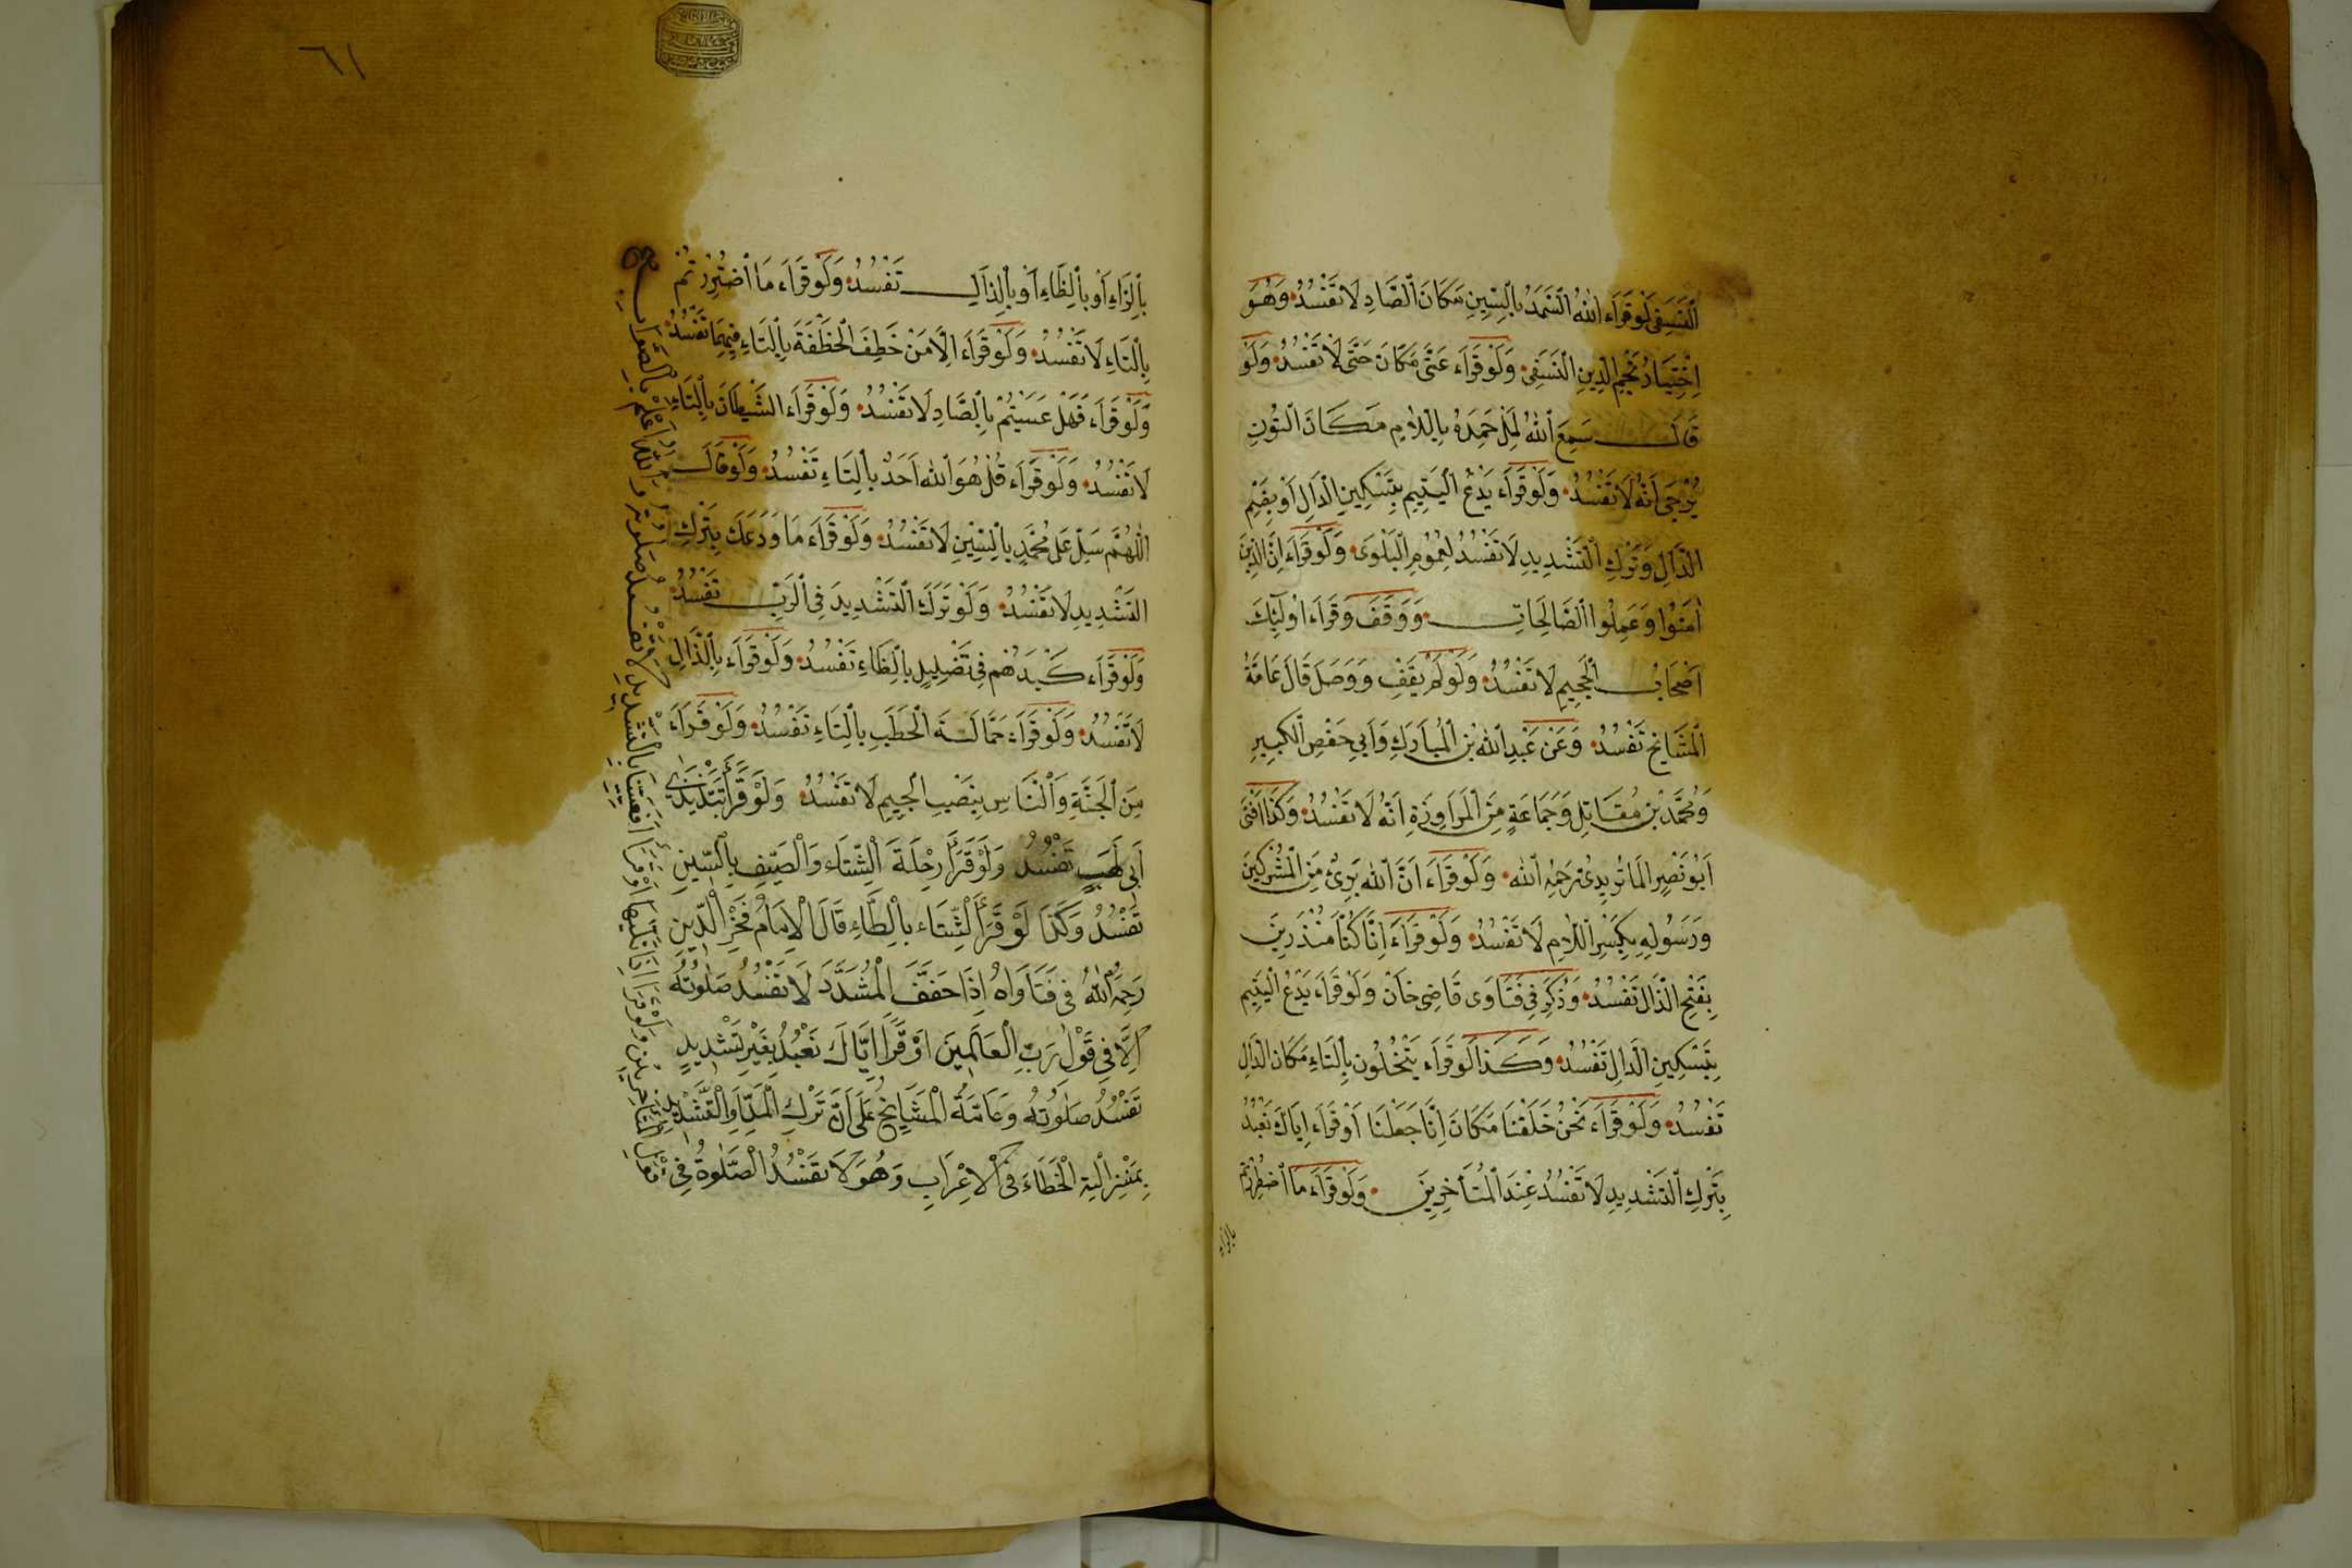 النَّسَفِي لَوْ قَرَاَءَ اَللهُ السَّمَدُ بِالسِّينِ مَكَانَ الصَّادِ لَا تَفْسُدُ وَهُوَ
اِخْتِيَارُ نَجْمِ الدِّينِ النَّسَفِي وَلَوْ قَرَاَءَ عَتَّى مَكَانَ حَتَّى لَا تَفْسُدُ وَلَوْ
قَالَ سَمِعَ اللهُ لِمَلْ حَمِدَهُ بِاللَّامِ مَكَانَ النُّونِ
يُرْجَى اَنَّهُ لَا تَفْسُدُ وَلَوْ قَرَاَءَ يَدْعُ الْيَتِيمِ بِتَسْكِينِ الدَّالِ اَوْ بِضَمِّ
الدَّالِ وَتَرْكِ التَّشْدِيدِ لَا تَفْسُدُ لِعُمُومِ الْبَلْوَى وَلَوْ قَرَاَءَ اِنَّ الَّذِينَ
اٰمَنُوا وَعَمِلُوا الصَّالِحَاتِ وَوَقَفَ وَقَرَاَءَ اُولٰئِكَ
اَصْحَابُ الْجَحِيمِ لَا تَفْسُدُ وَلَوْ لَمْ يَقِفْ وَوَصَلَ قَالَ عَامَّةُ
الْمَشَايِخِ تَفْسُدُ وَعَنْ عَبْدِ اللهِ بْنِ الْمُبَارَكِ وَاَبِي حَفْصِ الْكَبِيرِ
وَمُحَمَّدِ بْنِ مُقَاتِلِ وَجَمَاعَةٍ مِنَ الْمَرَاوِزَةِ اَنَّهُ لَا تَفْسُدُ وَكَذَا اَفْتَى
اَبُو نَصْرِ الْمَاتُرِيدِيُّ رَحِمَهُ اللهُ وَلَوْ قَرَاَءَ اَنَّ اللهَ بَرِيءٌ مِنَ الْمُشْرِكِينَ
وَرَسُولِهِ بِكَسْرِ اللَّامِ لَا تَفْسُدُ وَلَوْ قَرَاَءَ اِنَّا كُنَّا مُنْذَرِينَ
بِفَتْحِ الذَّالِ تَفْسُدُ وَذُكِرَ فِي فَتَاوَى قَاضِي خَانْ وَلَوْ قَرَاَءَ يَدْعُ الْيَتِيمِ
بِتَسْكِينِ الدَّالِ تَفْسُدُ وَكَذَا لَوْ قَرَاَءَ يَتْخُلُونَ بِالتَّاءِ مَكَانَ الدَّالِ
تَفْسُدُ وَلَوْ قَرَاَءَ نَحْنُ خَلَقْنَا مَكَانَ اِنَّا جَعَلْنَا اَوْ قَرَاَءَ اِيَاكَ نَعْبُدُ
بِتَرْكِ التَّشْدِيدِ لَا تَفْسُدُ عِنْدَ الْمُتَأَخِرِينَ وَلَوْ قَرَاَءَ مَا اضْطُرِرْتُمْ
بالزاء
٦١
بِالزَّاءِ اَوْ بِالظَّاءِ اَوْ بِالذَّالِ تَفْسُدُ وَلَوْ قَرَاَءَ مَا اضْتُرِرْتُمْ
بِالتَّاءِ لَا تَفْسُدُ وَلَوْ قَرَاَءَ اِلَّا مَنْ خَطِفَ الْخَطْفَةَ بِالتَّاءِ فِيهِمَا تَفْسُدُ
وَلَوْ قَرَاَءَ فَهَلْ عَسَيْتُمْ بِالصَّادِ لَا تَفْسُدُ وَلَوْ قَرَاَءَ الشَّيْطَانَ بِالتَّاءِ
لَا تَفْسُدُ وَلَوْ قَرَاَءَ قُلْ هُوَ اللهُ اَحَدٌ بِالتَّاءِ تَفْسُدُ وَلَوْ قَالَ
اللّٰهُمَّ سَلِّ عَلَى مُحَمَّدٍ بِالسِّينِ لَا تَفْسُدُ وَلَوْ قَرَاَءَ مَا وَدَعَكَ بِتَرْكِ
التَّشْدِيدِ لَا تَفْسُدُ وَلَوْ تَرَكَ التَّشْدِيدَ فِي الرَّبِّ تَفْسُدُ
وَلَوْ قَرَاَءَ كَيْدَهُمْ فِي تَضْلِيلٍ بِالظَّاءِ تَفْسُدُ وَلَوْ قَرَاَءَ بِالذَّالِ
لَا تَفْسُدُ وَلَوْ قَرَاَءَ حَمَّالَتَ الْحَطَبِ بِالتَّاءِ تَفْسُدُ وَلَوْ قَرَاَءَ
مِنَ الْجَنَّةِ وَالنَّاسِ بِنَصْبِ الْجِيمِ لَا تَفْسُدُ وَلَوْ قَرَأَ تَبَّتْ يَدَي
اَبِي لَهَبٍ تَفْسُدُ وَلَوْ قَرَأَ رِحْلَةَ الشِّتَاءِ وَالصَّيْفِ بِالسِّينِ
تَفْسُدُ وَكَذَا لَوْ قَرَأَ الشِّتَاءِ بِالطَّاءِ قَالَ الْاِمَامُ فَخْرُ الدِّينِ
رَحِمَهُ اللهُ فِي فَتَاوَاهُ اِذَا خَفَّفَ الْمُشَدَّدَ لَا تَفْسُدُ صَلٰوتُهُ
اِلَّا فِي قَوْلِ رَبِّ الْعَالَمِينَ اَوْ قَرَأَ اِيَّاكَ نَعْبُدُ بِغَيْرِ تَشْدِيدٍ
تَفْسُدُ صَلٰوتُهُ وَعَامَّةُ الْمَشَايِخِ عَلَى اَنَّ تَرْكَ الْمَدِّ وَالتَّشْدِيدِ
بِمَنْزِلَةِ الْخَطَاءِ فِي الْاِعْرَابِ وَهُوَ لَا تَفْسُدُ الصَّلٰوةُ فِي